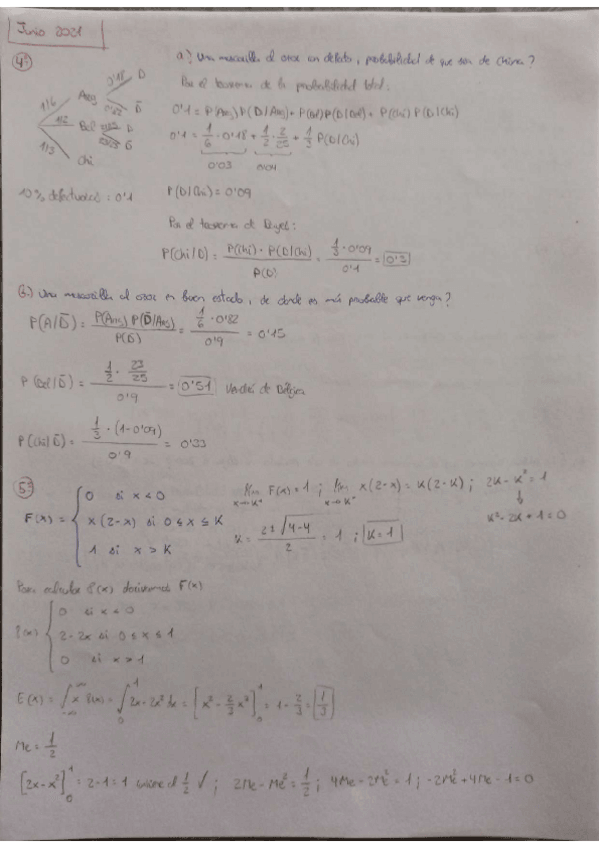 Junio 2021
4º
a) Una mascarilla al azar con defecto, probabilidad de que sea de China?
1/6 Arg 0'18 D
0'82 D̅
1/2 Bel 2/25 D
23/25 D̅
1/3 Chi
10% defectuosas: 0'1
Por el teorema de la probabilidad total:
0'1 = P(Arg) P(D/Arg) + P(Bel) P(D/Bel) + P(Chi) P(D/Chi)
0'1 = 1/6 · 0'18 + 1/2 · 2/25 + 1/3 P(D/Chi)
0'03 0'04
P(D/Chi) = 0'09
Por el teorema de Bayes:
P(Chi/D) = P(Chi) · P(D/Chi) / P(D) = 1/3 · 0'09 / 0'1 = 0'3
b) Una mascarilla al azar en buen estado, de donde es más probable que venga?
P(A/D̅) = P(Arg) P(D̅/Arg) / P(D̅) = 1/6 · 0'82 / 0'9 = 0'15
P(Bel/D̅) = 1/2 · 23/25 / 0'9 = 0'51 Vendrá de Bélgica
P(Chi/D̅) = 1/3 · (1-0'09) / 0'9 = 0'33
5º
F(x) = { 0 si x < 0
x(2-x) si 0 ≤ x ≤ K
1 si x > K
lim x→K⁺ F(x) = 1 ; lim x→K⁻ x(2-x) = K(2-K) ; 2K - K² = 1
K² - 2K + 1 = 0
K = 2 ± √4-4 / 2 = 1 ; K = 1
Para calcular f(x) derivamos F(x)
f(x) { 0 si x < 0
2-2x si 0 ≤ x ≤ 1
0 si x > 1
E(x) = ∫-∞^∞ x f(x) = ∫0^1 2x - 2x² dx = [x² - 2/3 x³]0^1 = 1 - 2/3 = 1/3
Me = 1/2
[2x - x²]0^1 = 2 - 1 = 1 el 1/2 ✓ ; 2Me - Me² = 1/2 ; 4Me - 2Me² = 1 ; -2Me² + 4Me - 1 = 0